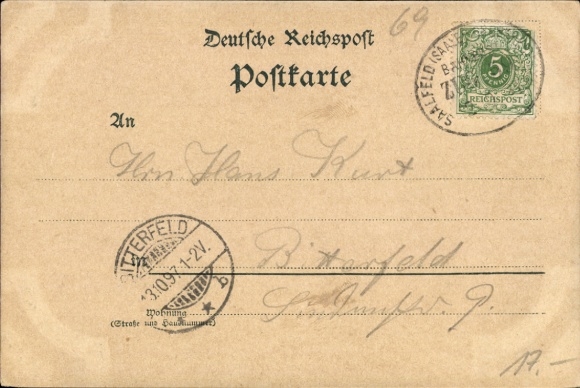 69
Deutsche Reichspost
Postkarte
SAALFELD (SAALE
5
REICHSPOST
An
Hrn Hans Kurt
BITTERFELD
13.10.97. 1-2V.
b
in
Bitterfeld
Wohnung
(Straße und Hausnummer)
17.-